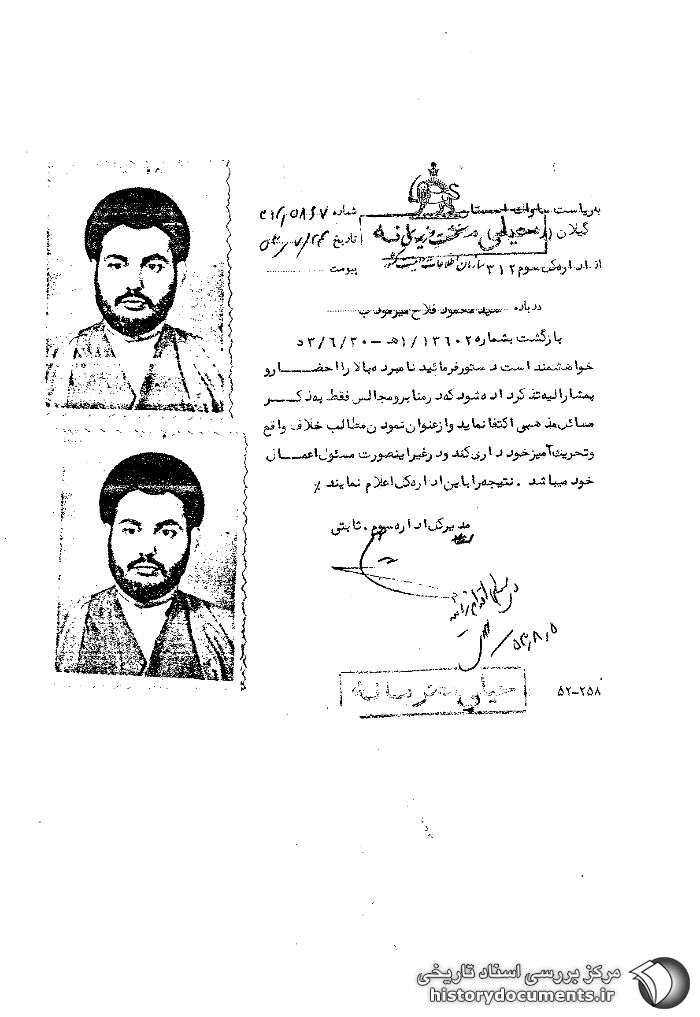 به ریاست ساواک استان
گیلان (
از اداره کل سوم ۳۱۲ سازمان اطلاعات و امنیت کشور
شماره
تاریخ
پیوست
درباره سید محمود فلاح میرموذب
بازگشت بشماره ۱۳۶۰۲/ ۱هـ – ۵۳/۶/۳۰
خواهشمند است دستور فرمائید نامبرده بالا را احضار و
بمشارالیه تذکر داده شود که در منابر و مجالس فقط به ذکر
مسائل مذهبی اکتفا نماید و از عنوان نمودن مطالب خلاف واقع
و تحریک آمیز خودداری کند و در غیر اینصورت مسئول اعمال
خود میباشد. نتیجه را باین اداره کل اعلام نمایند٪
مدیر کل اداره سوم. ثابتی
۵۳٫۸٫۵
خیلی محرمانه
۵۲-۲۵۸
مرکز بررسی اسناد تاریخی
historydocuments.ir